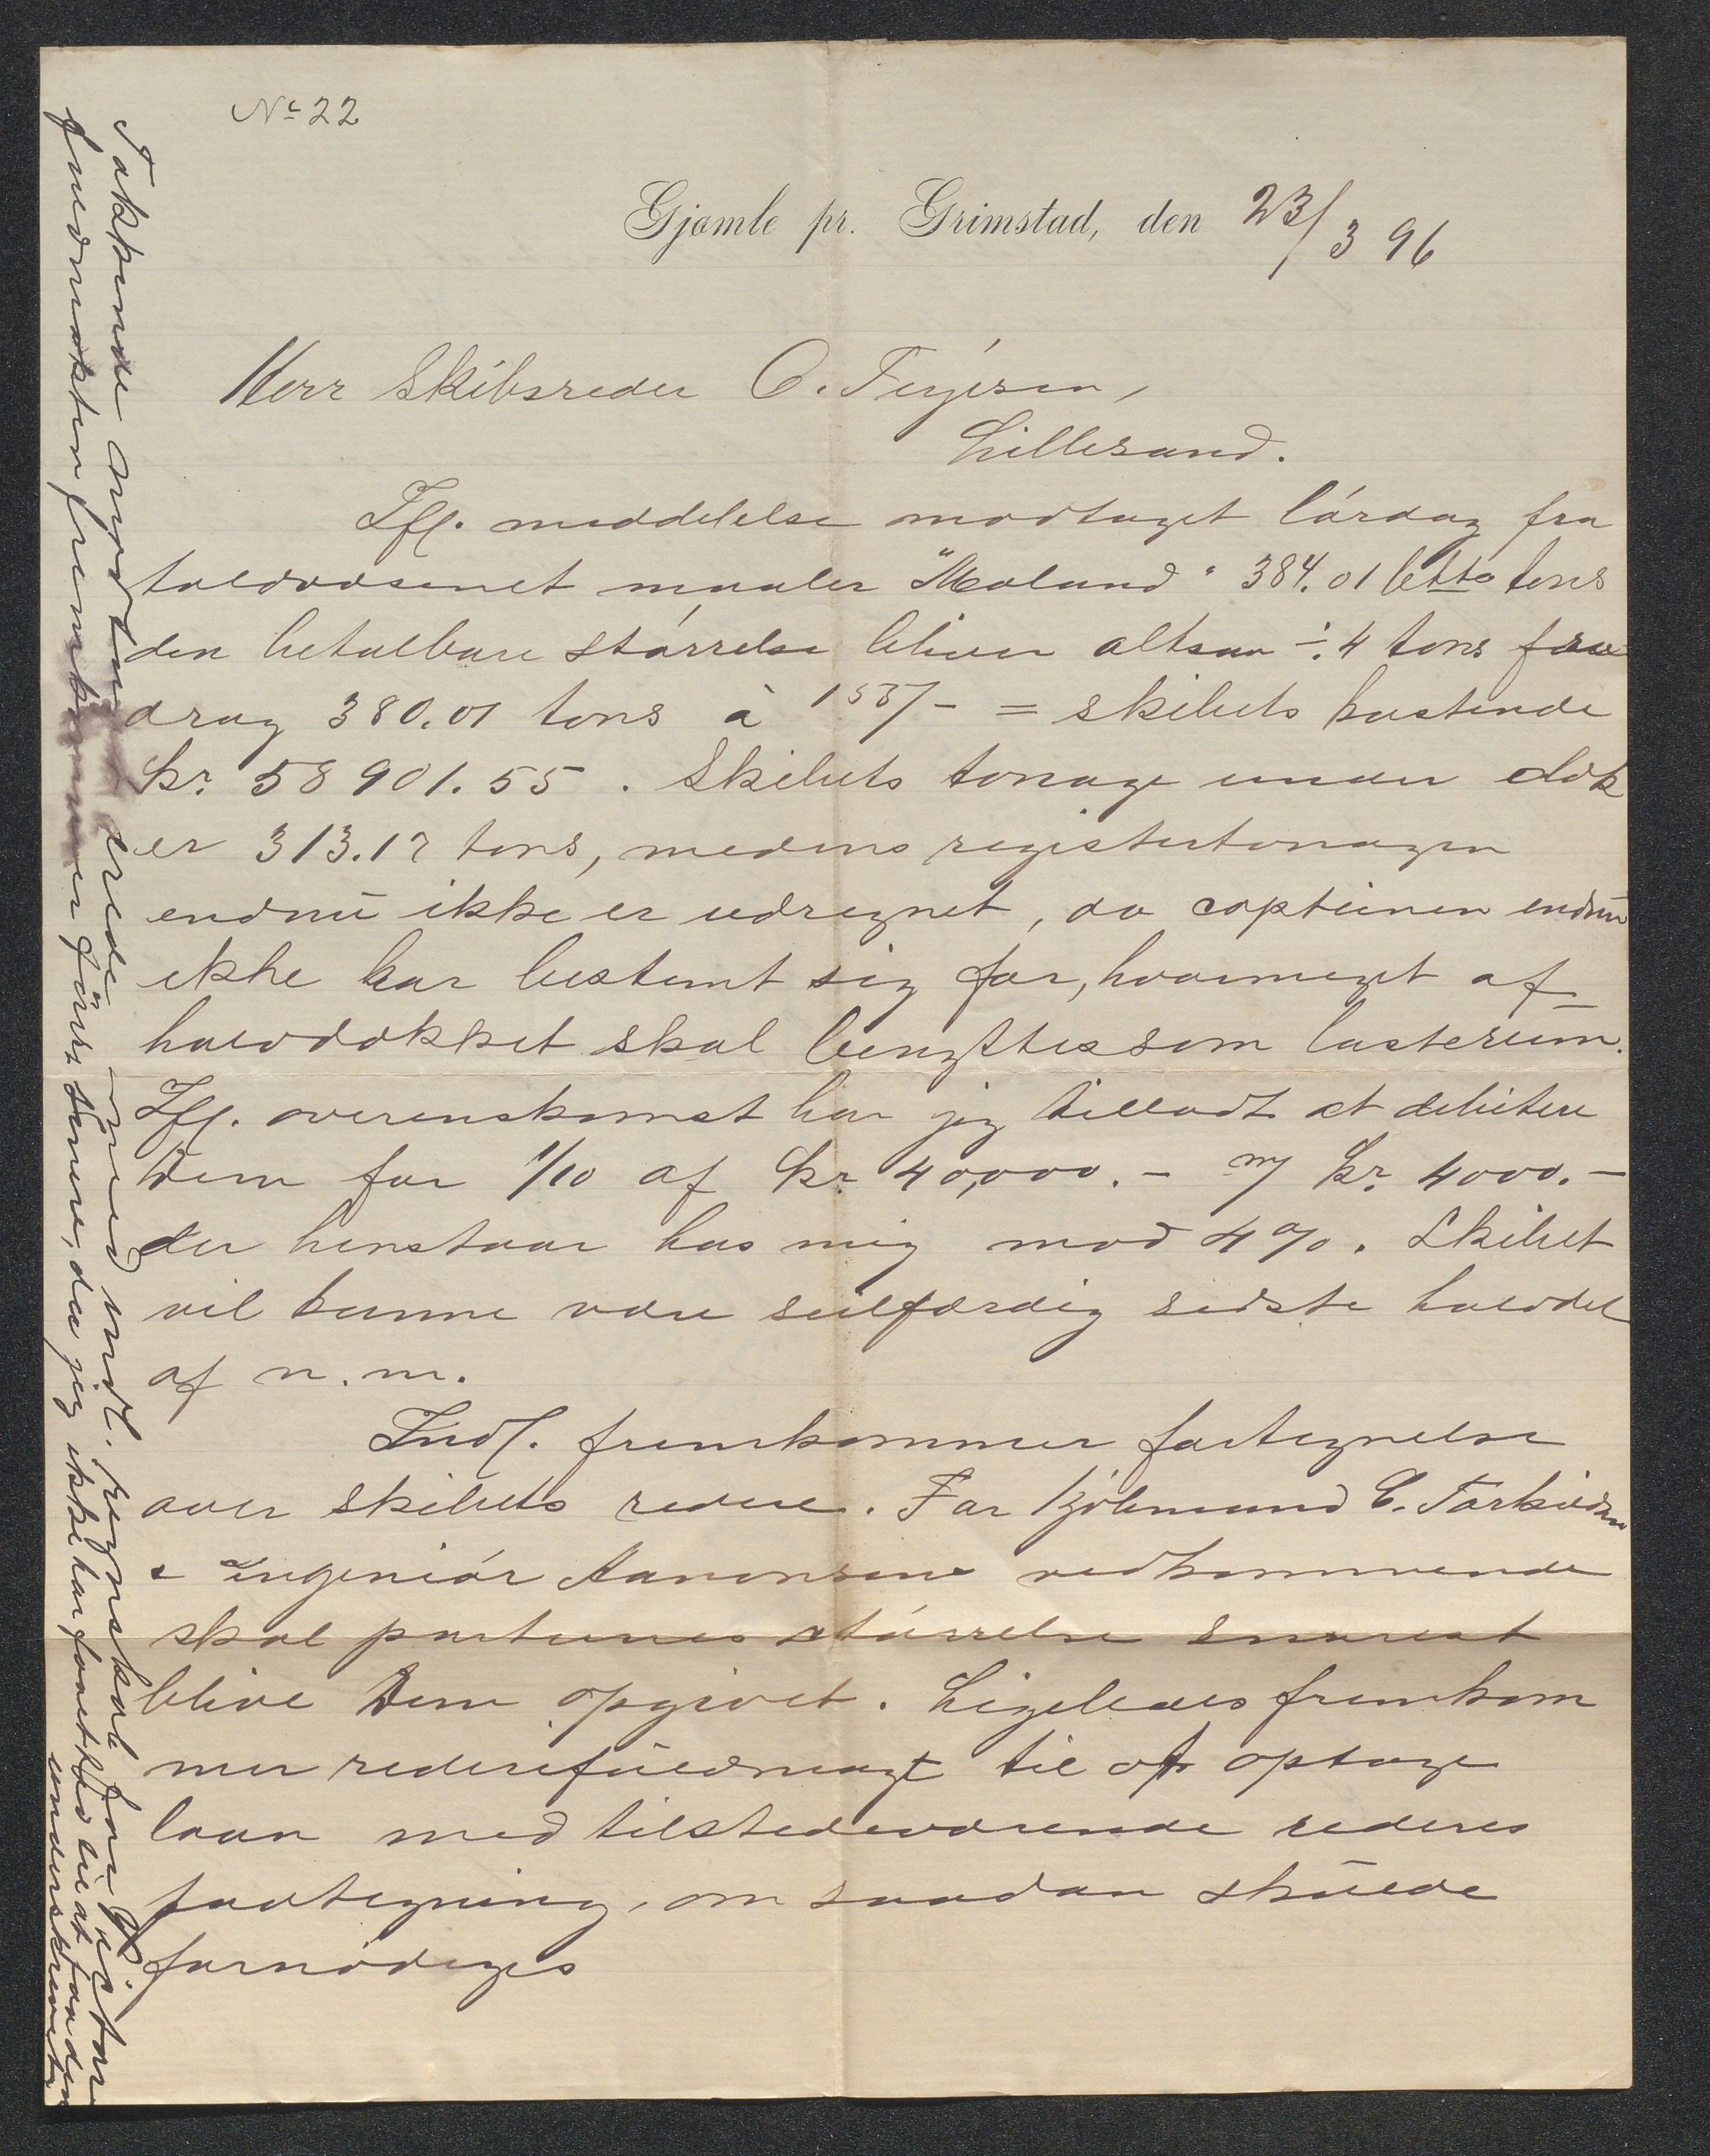 No 22
Gjømle pr. Grimstad, den 23/3 96
Herr Skibsreder O. Terjesen,
Lillesand.
Ifl. meddelelse modtaget lórdag fra
toldvæsenet maaler "Moland" 384.01 btto tons
den betalbare stórrelse bliver altsaa ÷ 4 tons fra
drag 380.01 tons à 155/- = skibets kostende
kr. 58901.55. Skibets tonage under dæk
er 313.17 tons, medens registertonagen
endnu ikke er udregnet, da capteinen endnu
ikke har bestemt sig for, hvormeget af
halvdækket skal benyttes som lasterum.
Ifl. overenskomst har jeg tilladt at debitere
Dem for 1/10 af kr. 40,000.- m/ kr. 4000.-
der henstaar hos mig mod 4%. Skibet
vil kunne være seilfærdig sidste halvdel
af n. m.
Indl. fremkommer fortegnelse
over skibets redere. For kjóbmand C. Torkildsen
& Ingeniór Aanonsens vedkommende
skal parternes stórrelse snarest
blive Dem opgivet. Ligeledes fremkom
mer rederifuldmagt til at optage
laan med tilstedeværende rederes
paategning, om saadan skulde
fornódiges
Takkende med indl. regnskab for
fuldmakten fremkommer först senere, da jeg ikke har faaet tid til at faa den
underskrevet